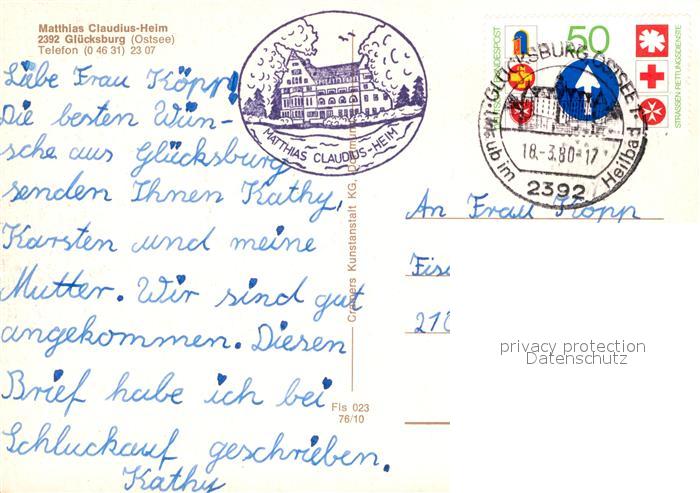 Matthias Claudius-Heim
2392 Glücksburg (Ostsee)
Telefon (0 46 31) 23 07
Liebe Frau Köpp!
Die besten Wün-
sche aus Glücksburg
senden Ihnen Kathy,
Karsten und meine
Mutter. Wir sind gut
angekommen. Diesen
Brief habe ich bei
Schluckauf geschrieben.
Kathy
MATTHIAS CLAUDIUS-HEIM
Cramers Kunstanstalt KG, Dortmund
Fls 023
76/10
50
STRASSEN-RETTUNGSDIENSTE
GLÜCKSBURG, OSTSEE
18.-3.80-17
2392
Urlaub im Heilbad
An Frau Köpp
privacy protection
Datenschutz